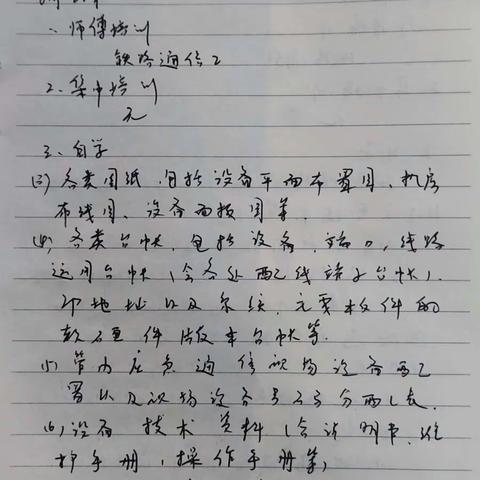 一、师傅培训
铁路通信工
2、集中培训
无
三、自学
(3)各类图纸,包括设备平面布置图、机房
布线图、设备面板图等.
(4)各类台帐,包括设备、端口,线路
运用台帐(含各处配线端子台帐),
IP地址以及系统、主要板件的
软硬件版本台帐等.
(5)管内应急通信现场设备配
置以及现场设备号码分配表.
(6)设备技术资料(含说明书、维
护手册,操作手册等)